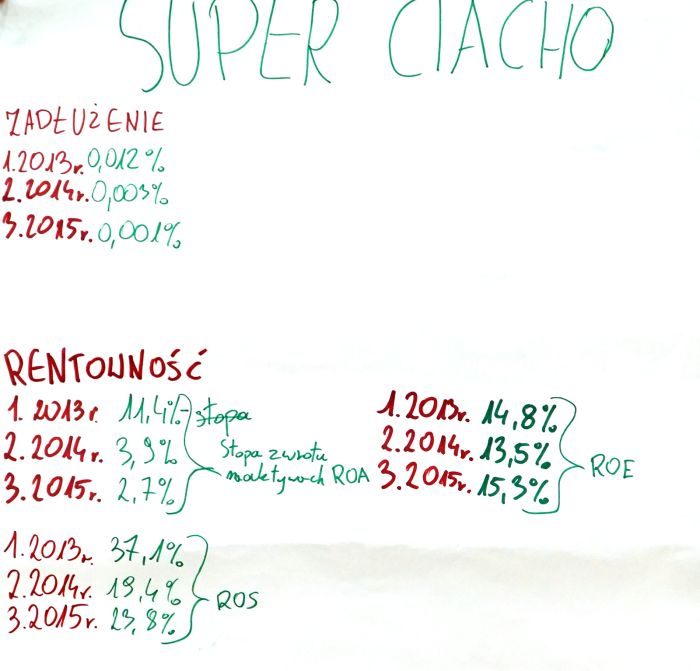 SUPER CIACHO
ZADŁUŻENIE
1.2013r. 0,012%
2.2014r. 0,003%
3.2015r. 0,001%
RENTOWNOŚĆ
1. 2013r. 11,4% - stopa
2. 2014r. 3,9%
Stopa zwrotu
3. 2015r. 2,7%
ROA
1.2013r. 14,8%
2.2014r. 13,5%
3.2015r. 15,3%
ROE
1.2013r. 37,1%
2.2014r. 19,4%
3.2015r. 23,8%
ROS